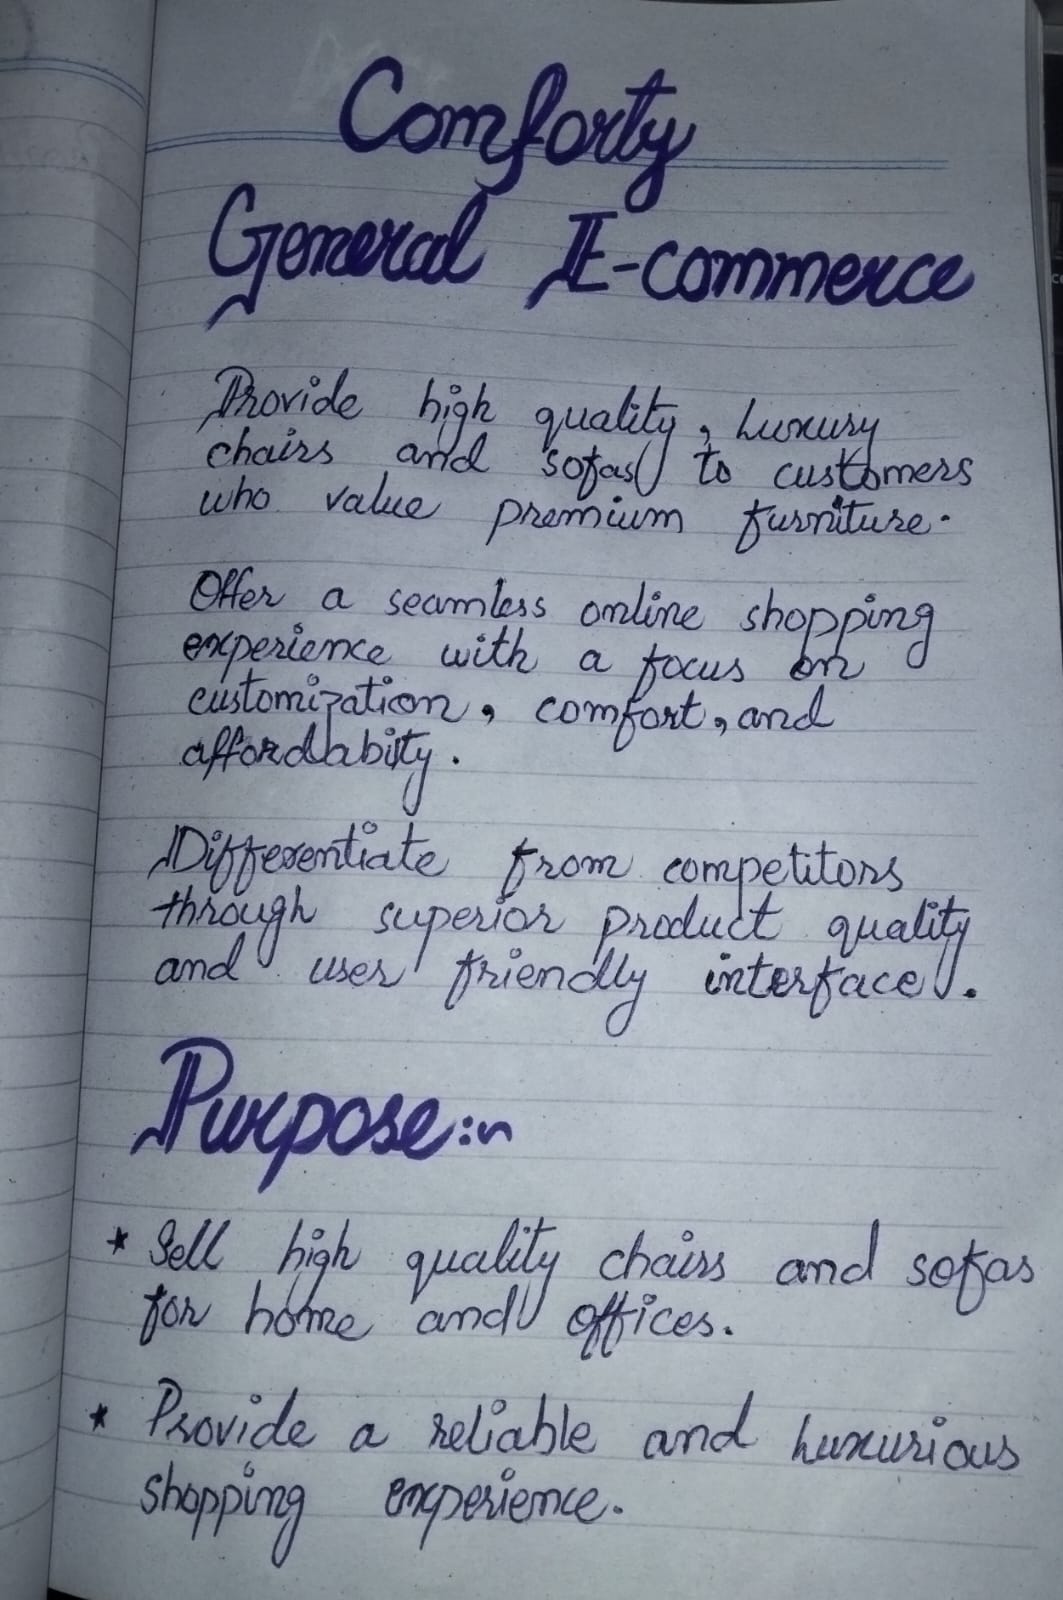 Comforty
General E-commerce
Provide high quality, Luxury
chairs and sofas to customers
who value premium furniture.
Offer a seamless online shopping
experience with a focus on
customization, comfort, and
affordabity.
Differentiate from competitors
through superior product quality
and user friendly interface.
Purpose:~
* Sell high quality chairs and sofas
for home and offices.
* Provide a reliable and Luxurious
shopping experience.